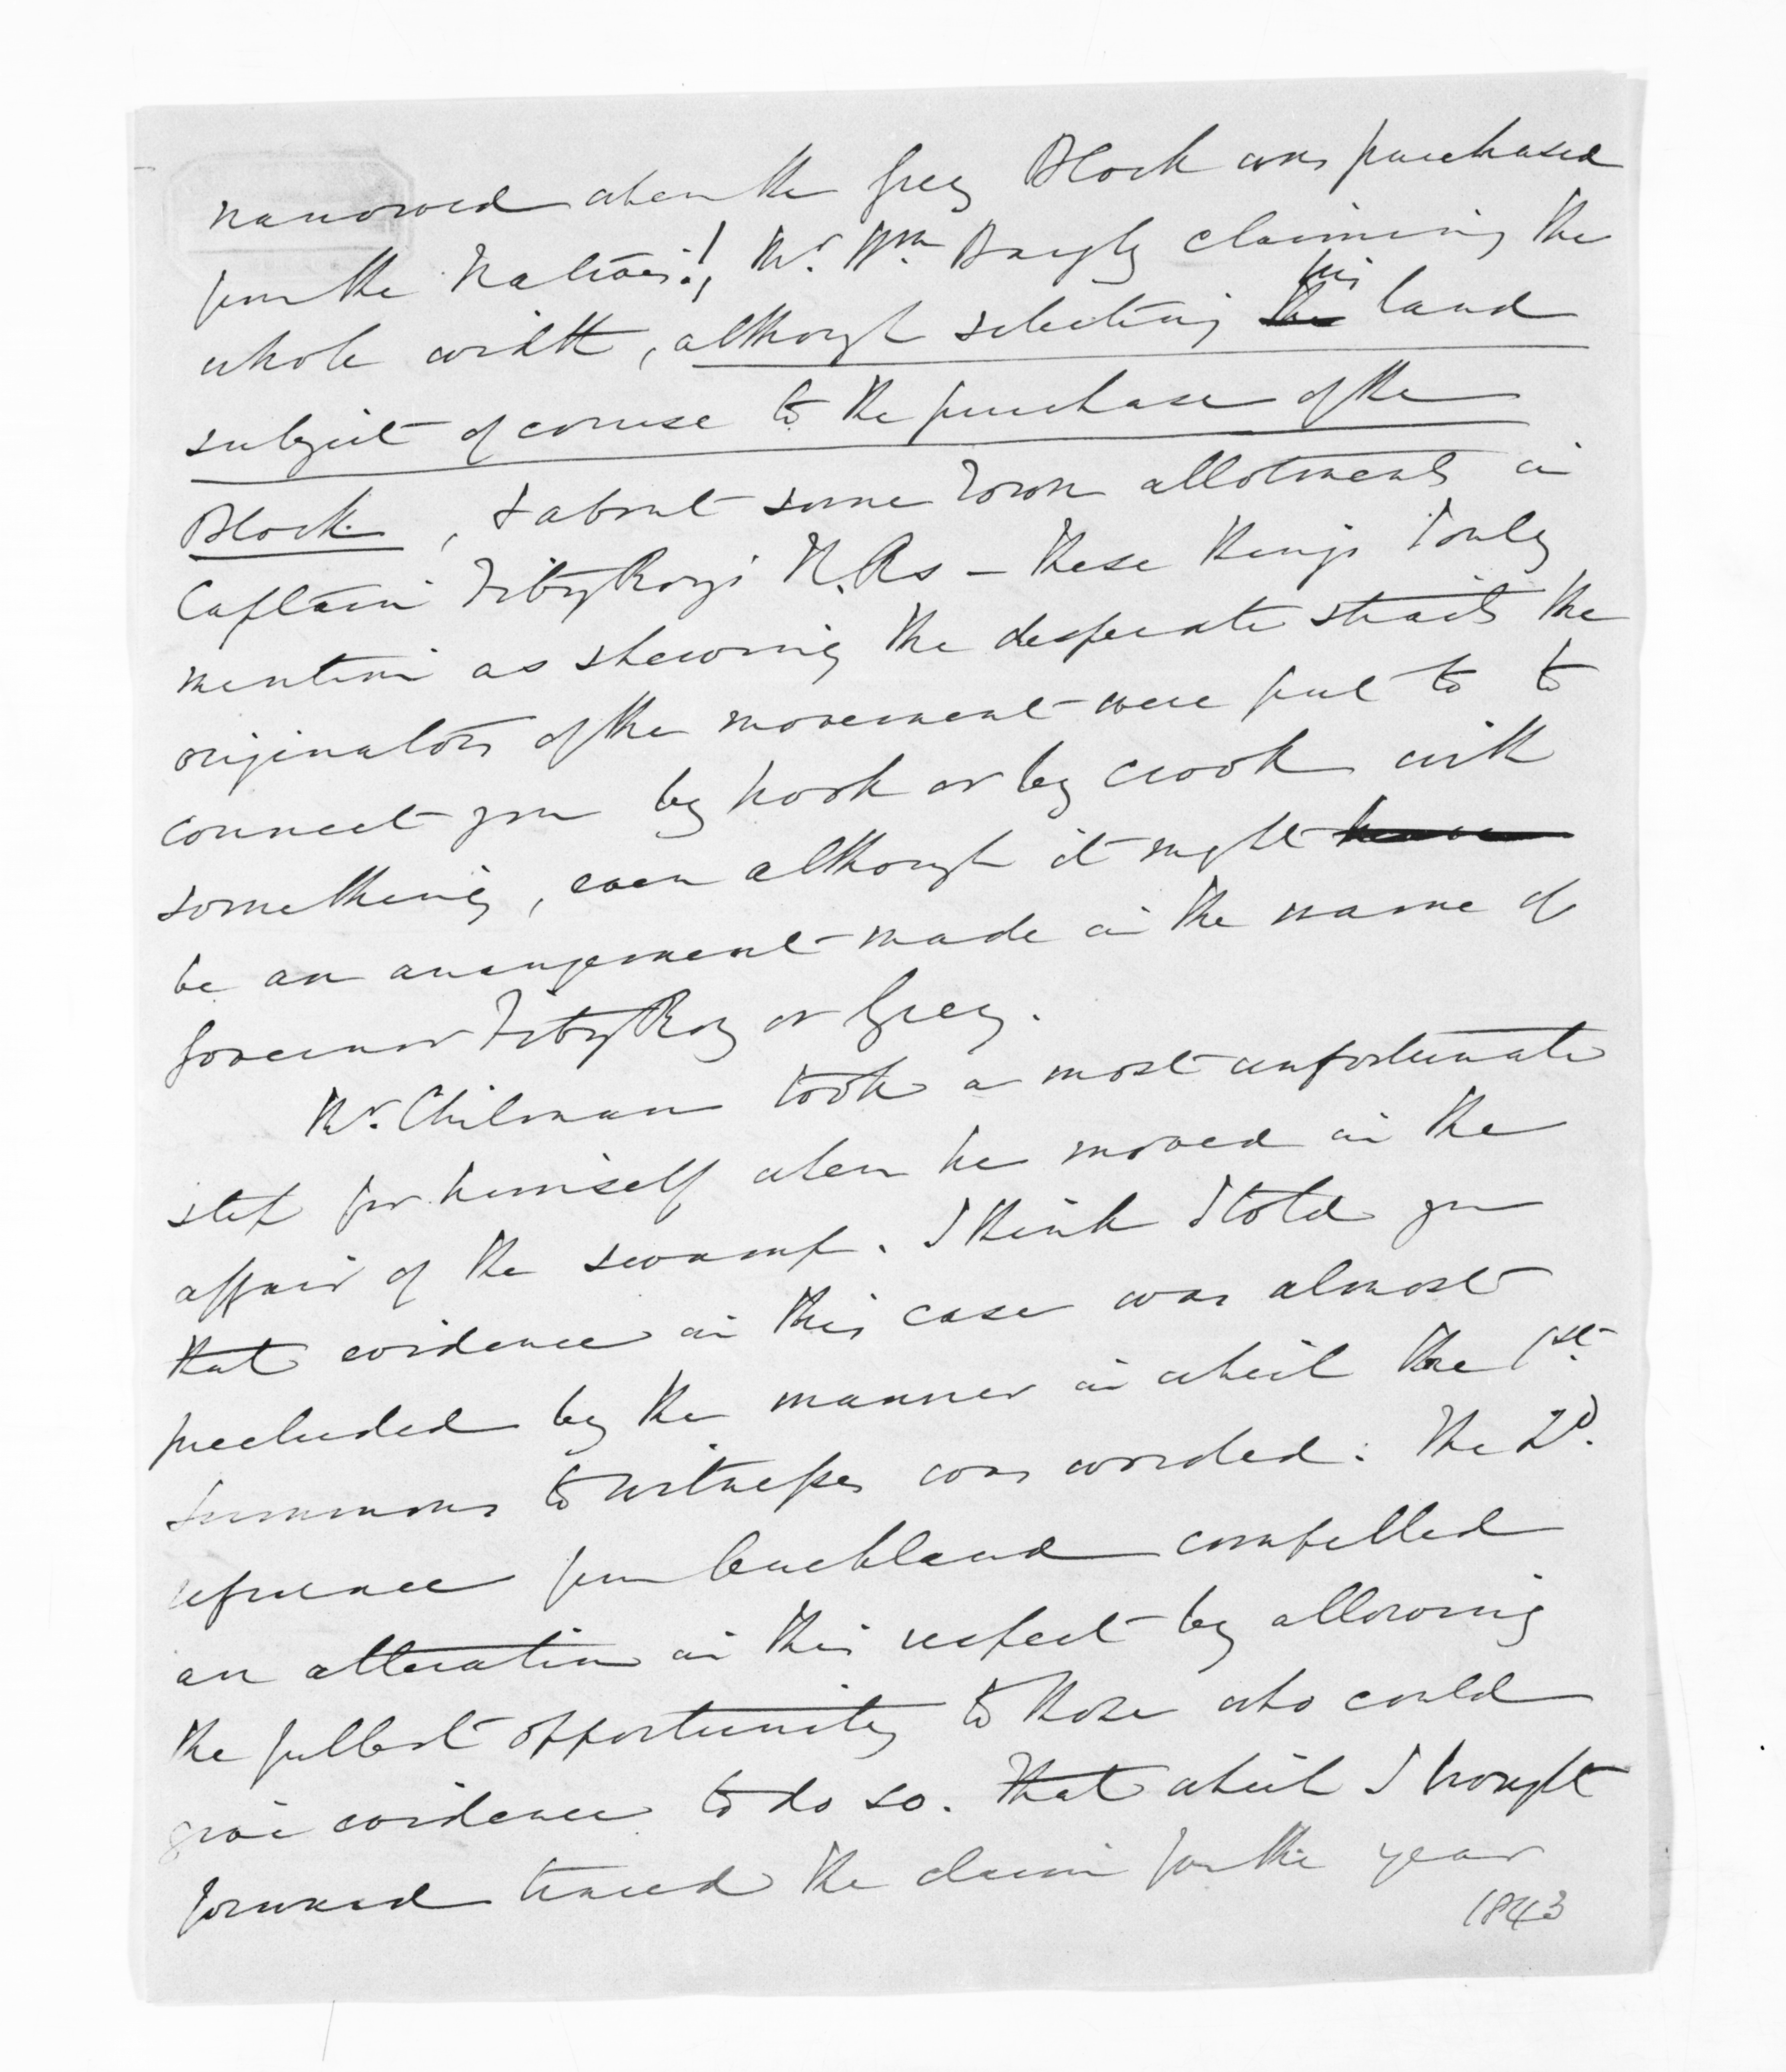 narrowed when the Grey Block was purchased
from the Natives!, Mr. Wm. Bayly claiming the
whole width, although selecting the his land
subject of course to the purchase of the
Block, & about some Town allotments in
Captain FitzRoy's N.Rs - these things I only
mention as shewing the desperate straits the
originators of the movement were put to to
connect you by hook or by crook with
something, even although it might have
be an arrangement made in the name of
Governor FitzRoy or Grey.
Mr. Chilman took a most unfortunate
step for himself when he moved in the
affair of the swamp. I think I told you
that evidence in this case was almost
precluded by the manner in which the 1st.
summons to witnesses was worded: The 2d.
reference from Auckland compelled
an alteration in this respect by allowing
the fullest opportunity to those who could
give evidence to do so. That which I brought
forward traced the claim from the year
1843